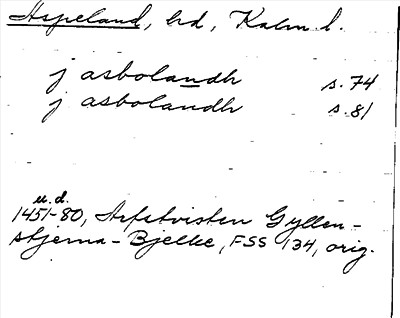 Aspeland, hd, Kalm. l.
j asbolandh s. 74
j asbolandh s. 81
u.d.
1451-80, Arfstvisten Gyllen-
stjerna - Bjelke, FSS 134, orig.